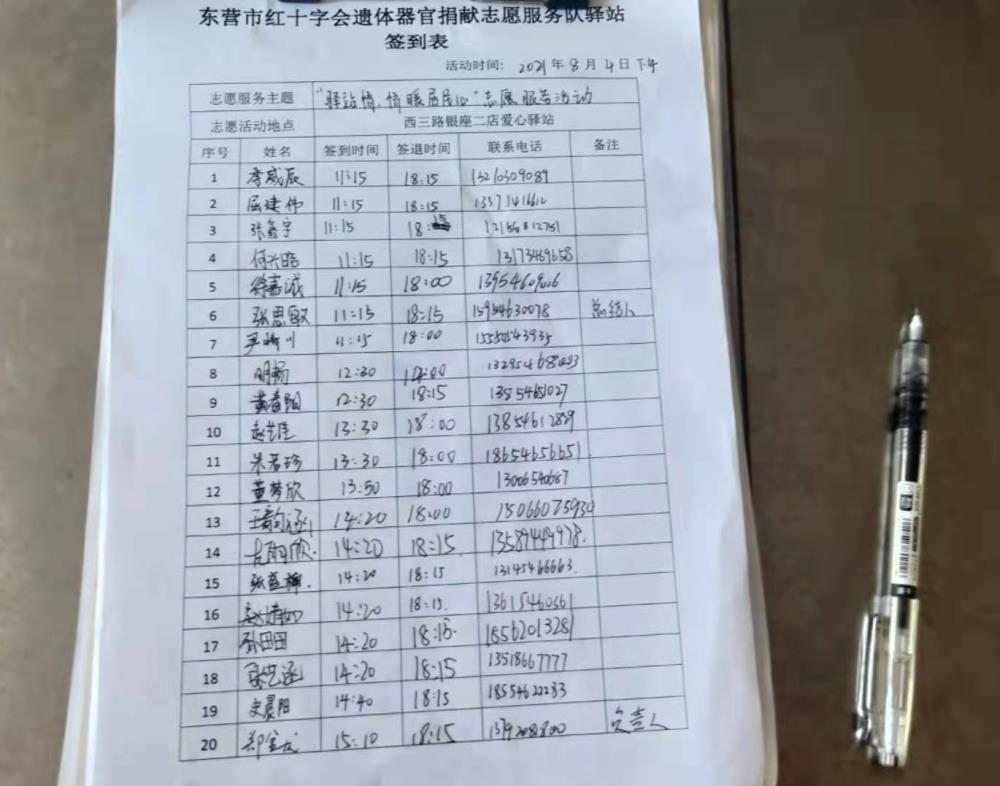 东营市红十字会遗体器官捐献志愿服务队驿站
签到表
活动时间: 2021年8月4日下午
志愿服务主题 "驿站情,情暖居民心"志愿服务活动
志愿活动地点 西三路银座二店爱心驿站
序号 姓名 签到时间 签退时间 联系电话 备注
1 李威辰 11:15 18:15 13210309089
2 屈建伟 11:15 18:15
3 张鑫宇 11:15
4 何兴晧 11:15 18:15 13173469658
5 徐嘉诚 11:15 18:00
6 张思敏 11:15 18:15 15954630078 总结人
7 11:15 18:00
8 明杨 12:30
9 黄春阳 12:30 18:15
10 赵艺佳 13:30 18:00 13854612839
11 朱若珍 13:30 18:00 18654656651
12 董梦欣 13:50 18:00
13 王韵涵 14:20 18:00 15066075930
14 14:20 18:15 13589449978
15 张益梅 14:20 18:15 13145466663
16 赵婧如 14:20 18:15 13615460361
17 孙田田 14:20 18:15 18562013281
18 张艺涵 14:20 18:15 13518667777
19 史晨阳 14:40 18:15 18554622233
20 郑金龙 15:10 18:15 负责人